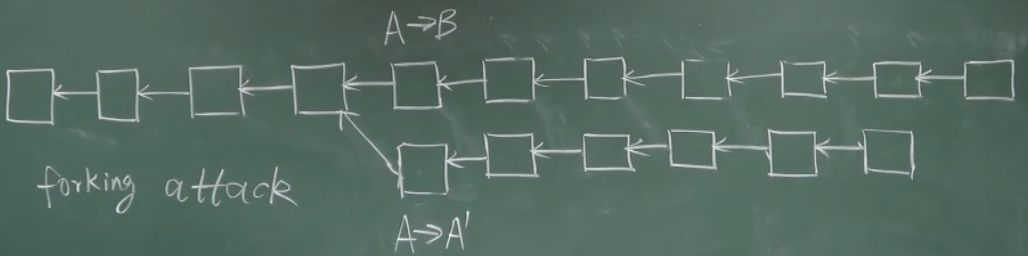 A→B
forking attack
A→A'